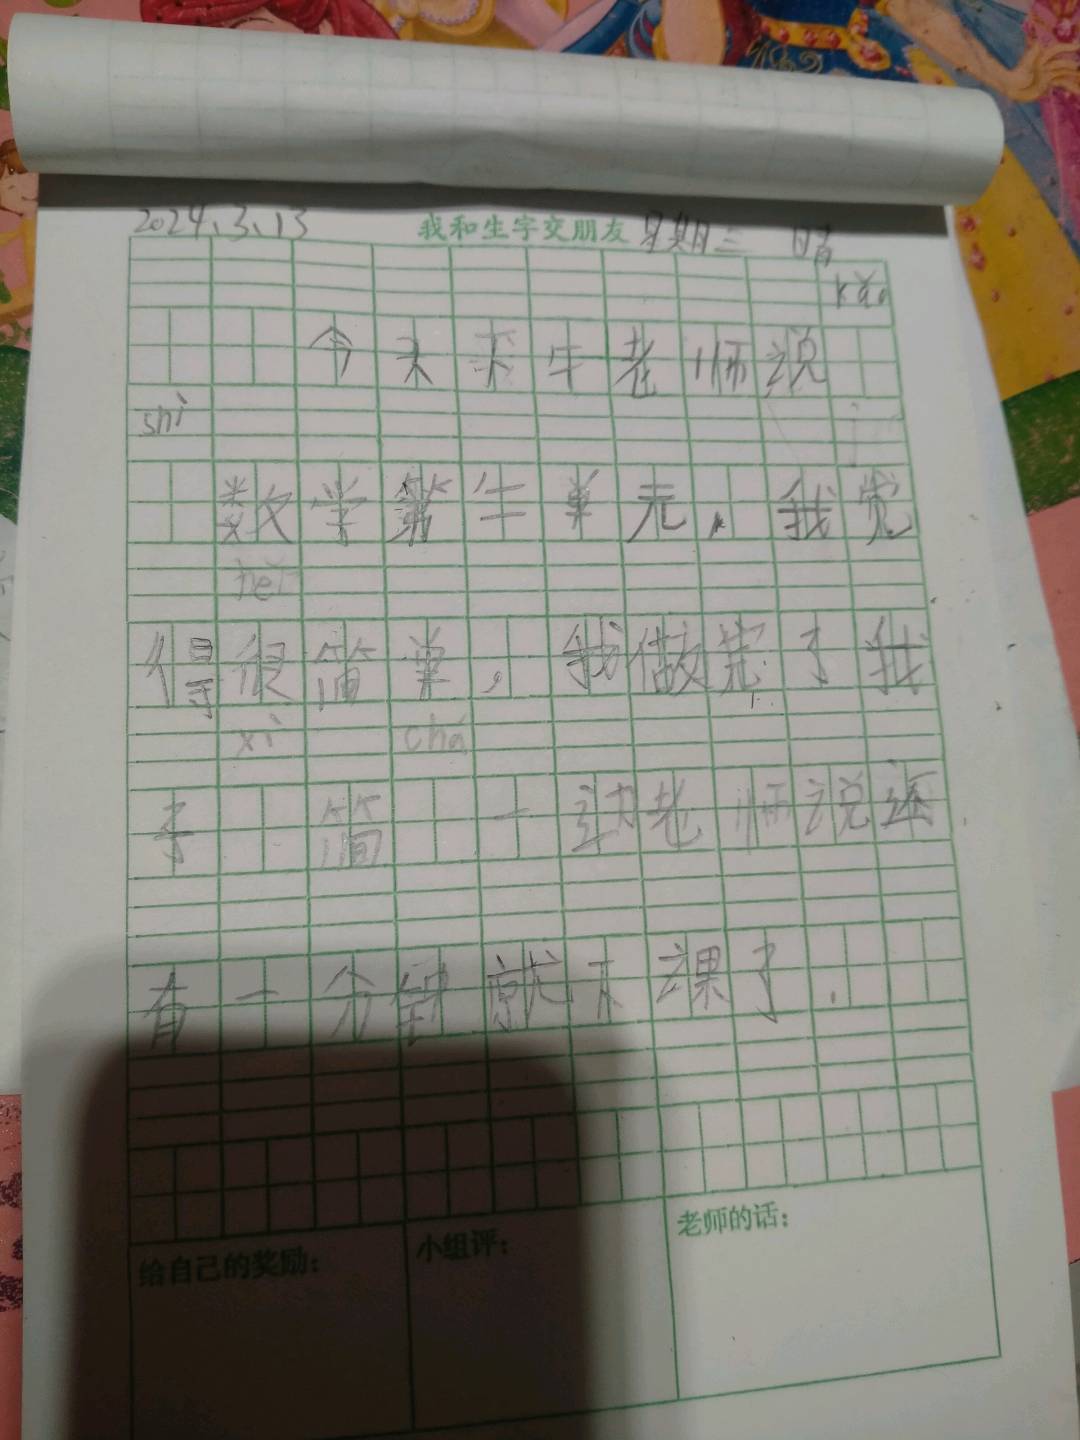 2024.3.13 我和生字交朋友 星期三 晴
kǎo
今天天牛老师说
shì
数学第生单元，我觉
hěn
得很简单，我做完了我
xì chá
了 简 一 边老师说还
有一分钟就下课了.
给自己的奖励：
小组评：
老师的话：